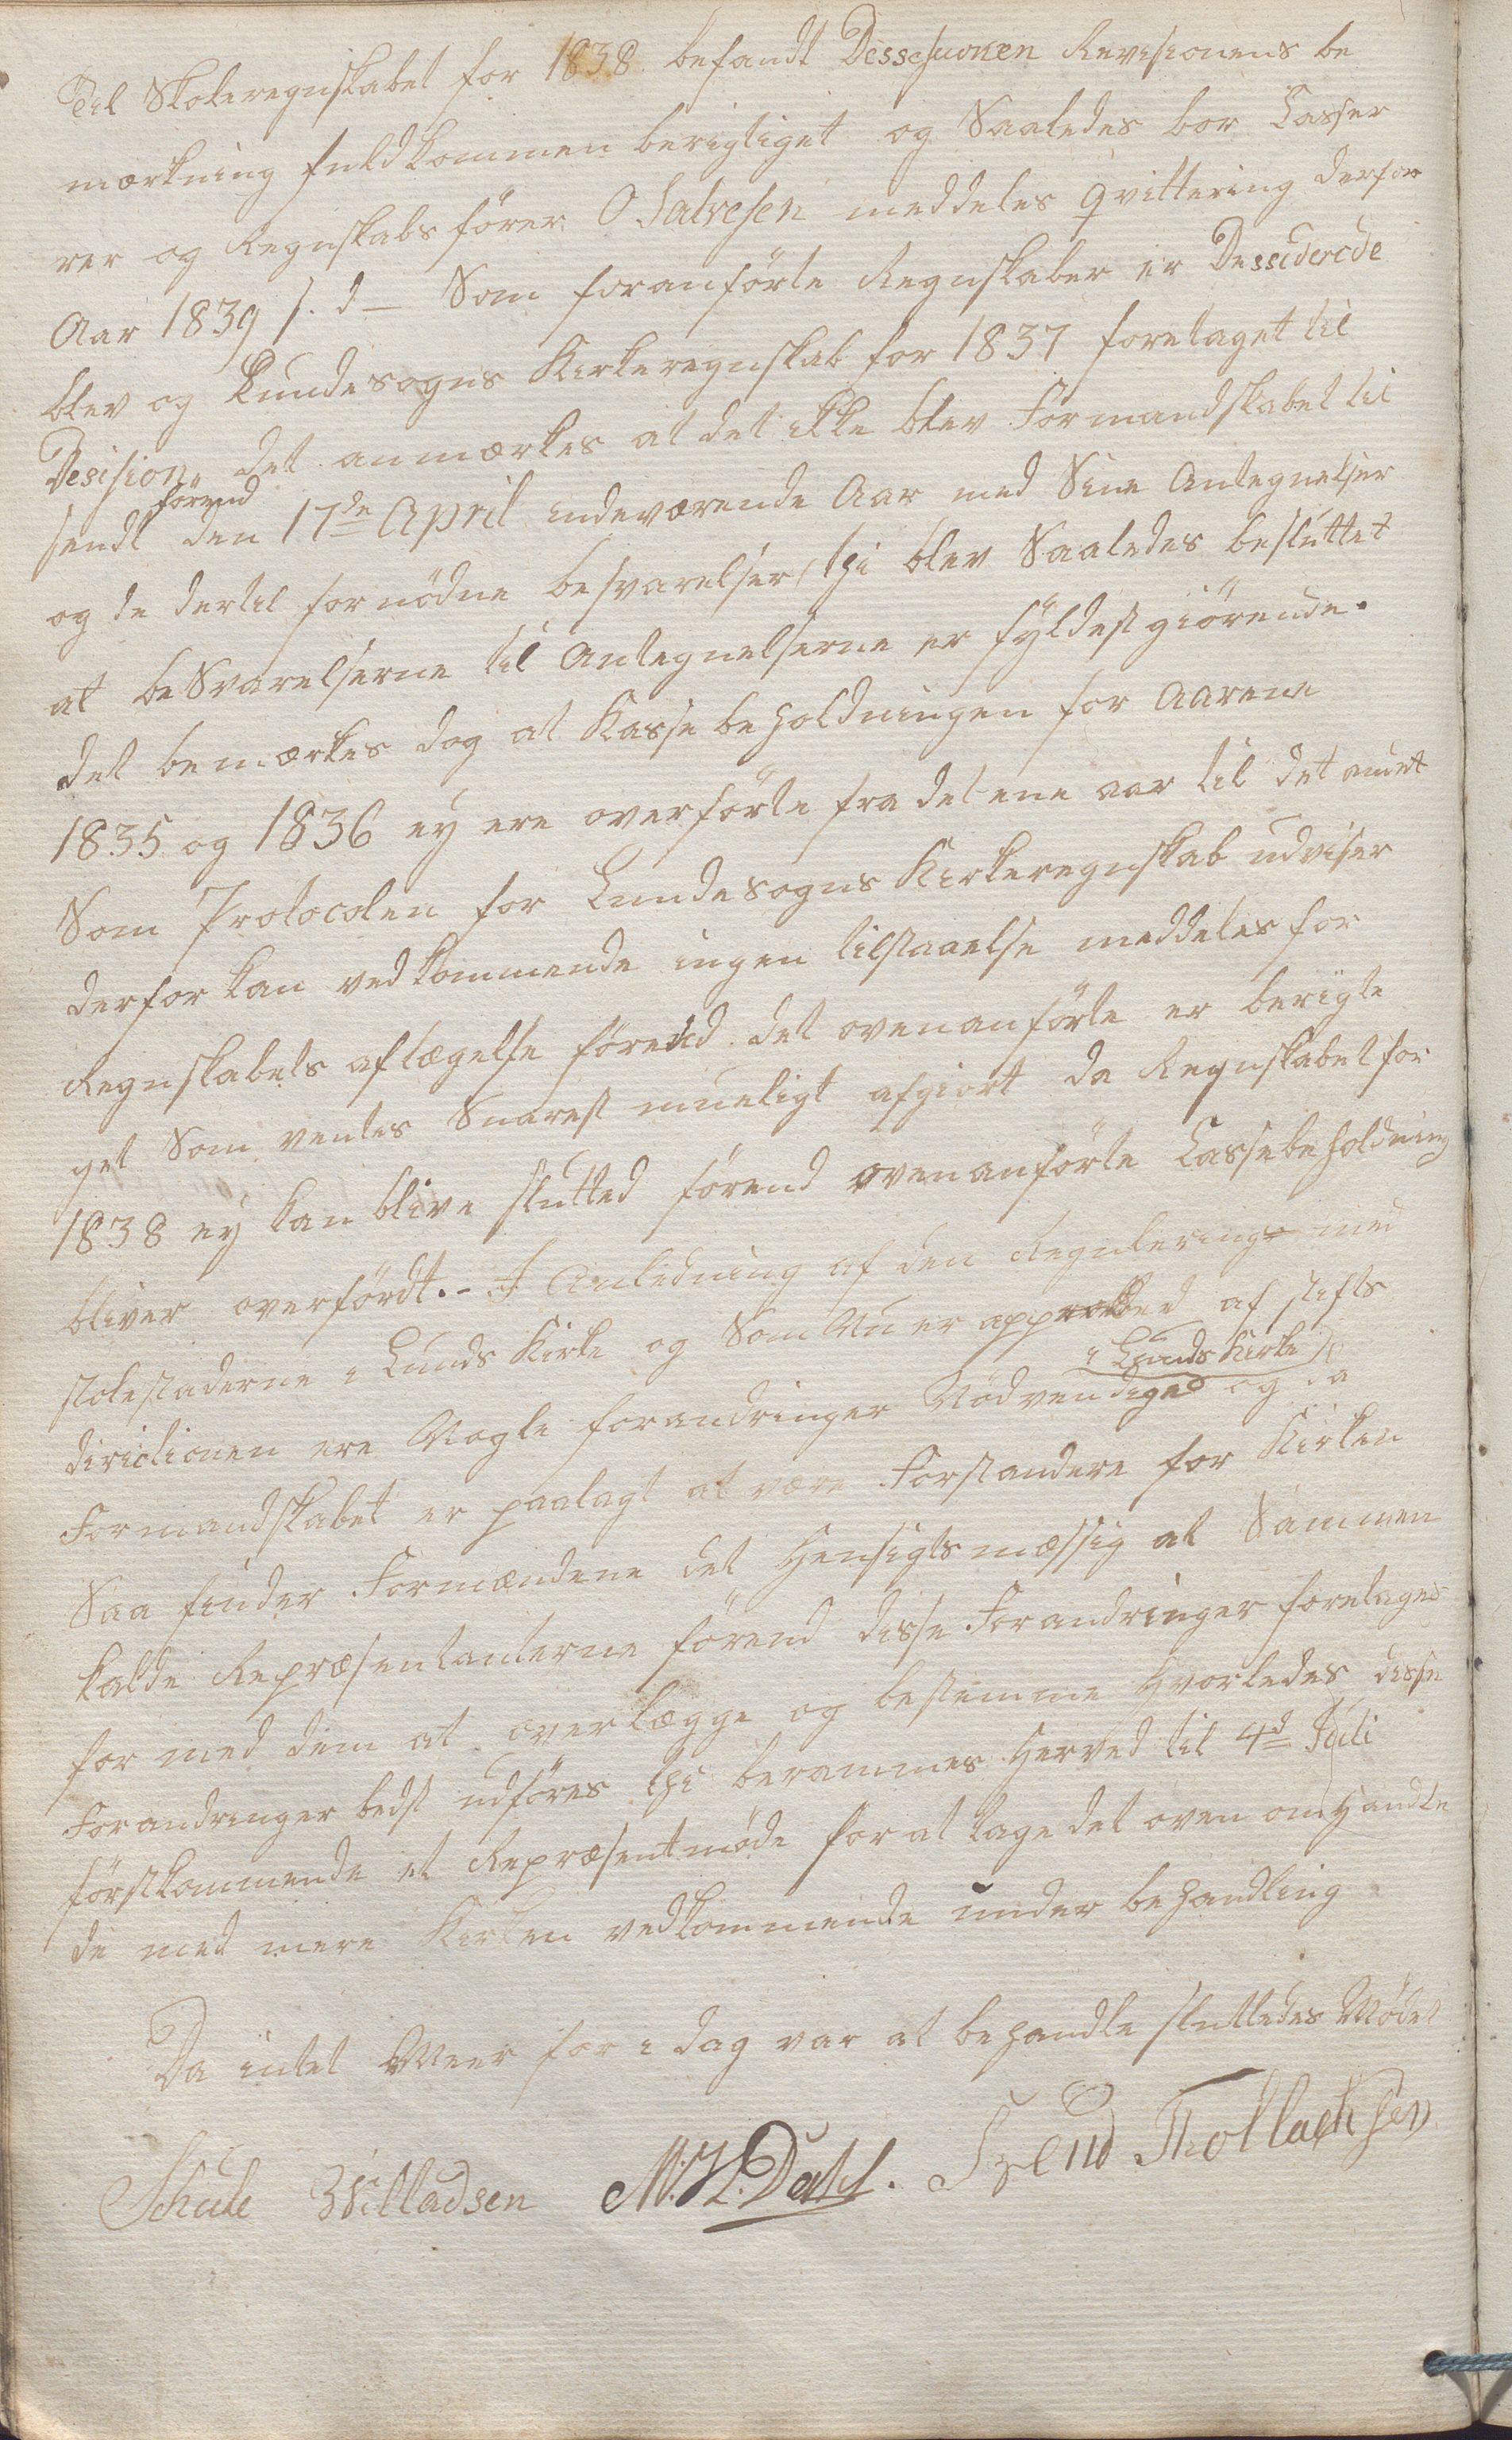 Til Skoleregnskabet for 1838 befandt Dessesuonen Revisionens be
mærkning fuldkommen berigtiget og Saaledes bør Casser
rer og Regnskabsfører O Salvesen meddeles qvittering derfor
Aar 1839 s. d – Som foranførte Regnskaber er Dessiderede
blev og Lundesogns Kirkeregnskab for 1837 foretaget til
Desision, det anmærkes at det ikke blev Formandskabet til
sendt førend den 17de April indeværende Aar med Sine Antegnelser
og de dertil fornødne besvarelser, thi blev Saaledes besluttet
at beSvarelserne til Antegnelserne er fyldestgiørende.
det bemærkes dog at Kassebeholdningen for Aarene
1835 og 1836 ey ere overførte fra det ene aar til det andet
Som Protocolen for Lundesogns Kirkeregnskab udviser
derfor kan vedkommende ingen tilstaaelse meddeles for
Regnskabets aflægelse førend det ovenanførte er berigte
get Som ventes Snarest mueligt afgiort da Regnskabet for
1838 ey kan blive slutted førend ovenanførte Cassebeholdning
bliver overfördt. – I Anledning af den Regulering med
stolestaderne i Lunds Kirke og Som Nu er approbed af stifts
dirictionen ere Nogle forandringer i Lunds Kirke Nødvendiged og da
Formandskabet er paalagt at være Forstandere for Kirken
Saa finder Formændene det Hensigtsmæssig at Sammen
kalde Repræsentanterne førend disse Forandringer foretages
for med dem at overlægge og bestemme Hvorledes disse
Forandringer bedst udføres thi berammes Herved til 4d Juli
førstkommende et Repræsentmøde for at tage det oven omhandle
de med mere Kirken vedkommende under behandling
Da intet Meer for i dag var at behandle sluttedes Mødet
Schule Villadsen M. H. Dahl. Svend Thollachsen